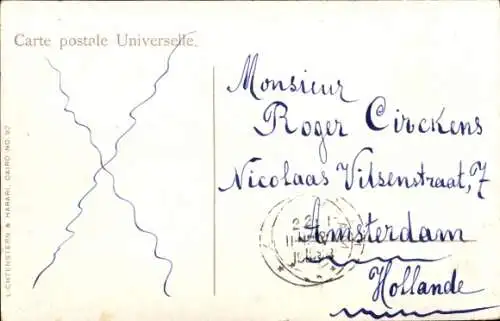 Carte postale Universelle.
LICHTENSTERN & HARARI, CAIRO NO. 92
Monsieur
Roger Circkens
Nicolaas Vitsenstraat, 7
Amsterdam
Hollande